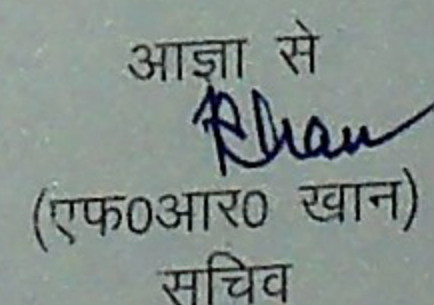 आज्ञा से
RKhan
(एफ0आर0 खान)
सचिव